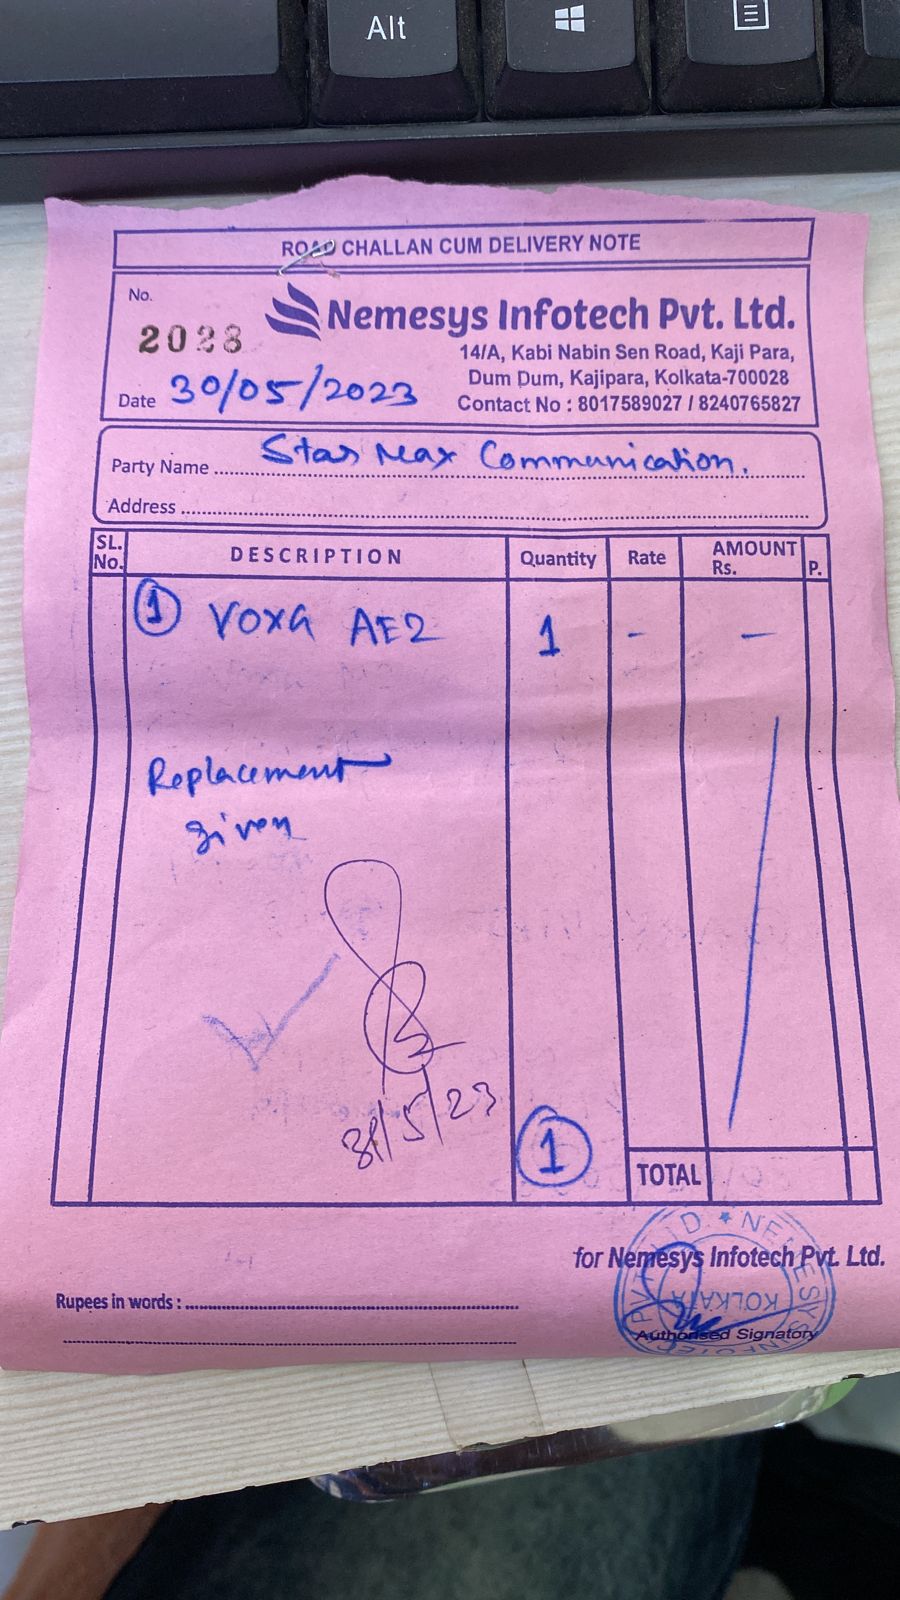 Alt
ROAD CHALLAN CUM DELIVERY NOTE
No.
2028
Nemesys Infotech Pvt. Ltd.
14/A, Kabi Nabin Sen Road, Kaji Para,
Dum Dum, Kajipara, Kolkata-700028
Date 30/05/2023
Contact No : 8017589027 / 8240765827
Party Name Star Max Communication.
Address
SL. No. DESCRIPTION Quantity Rate AMOUNT Rs. P.
1 VOXA AE2 1 - -
Replacement
given
/5/23
1
TOTAL
for Nemesys Infotech Pvt. Ltd.
Rupees in words :
KOLKATA
Authorised Signatory